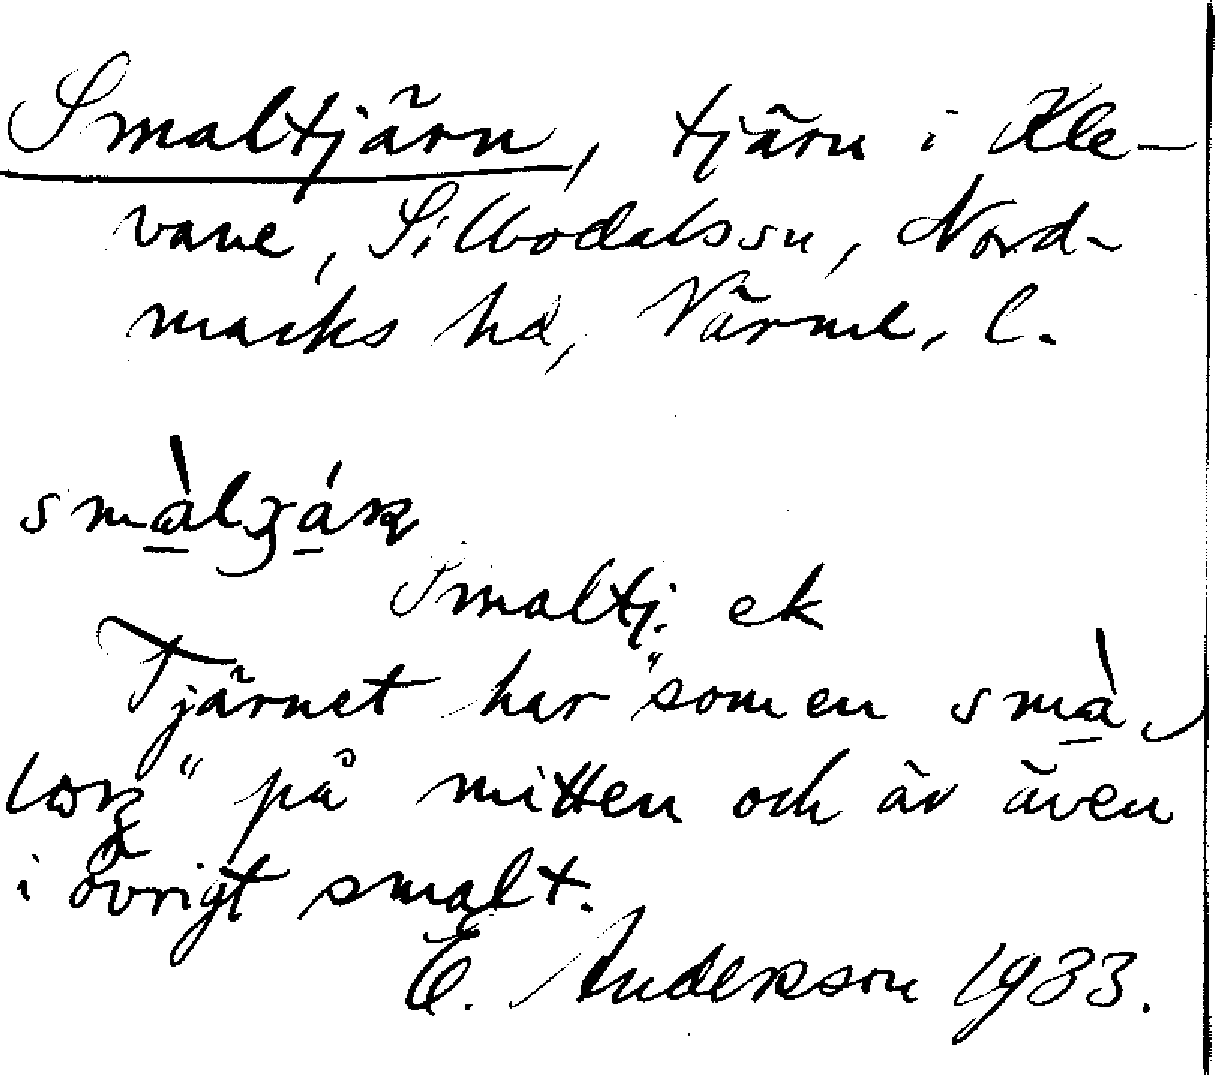 Smaltjärn, tjärn i Kle-
vane, Silbodalssn, Nord-
marks hd, Värml. l.
Smaltj. ek
Tjärnet har "som en små
" på mitten och är även
i övrigt smalt.
E. Andersson 1933.